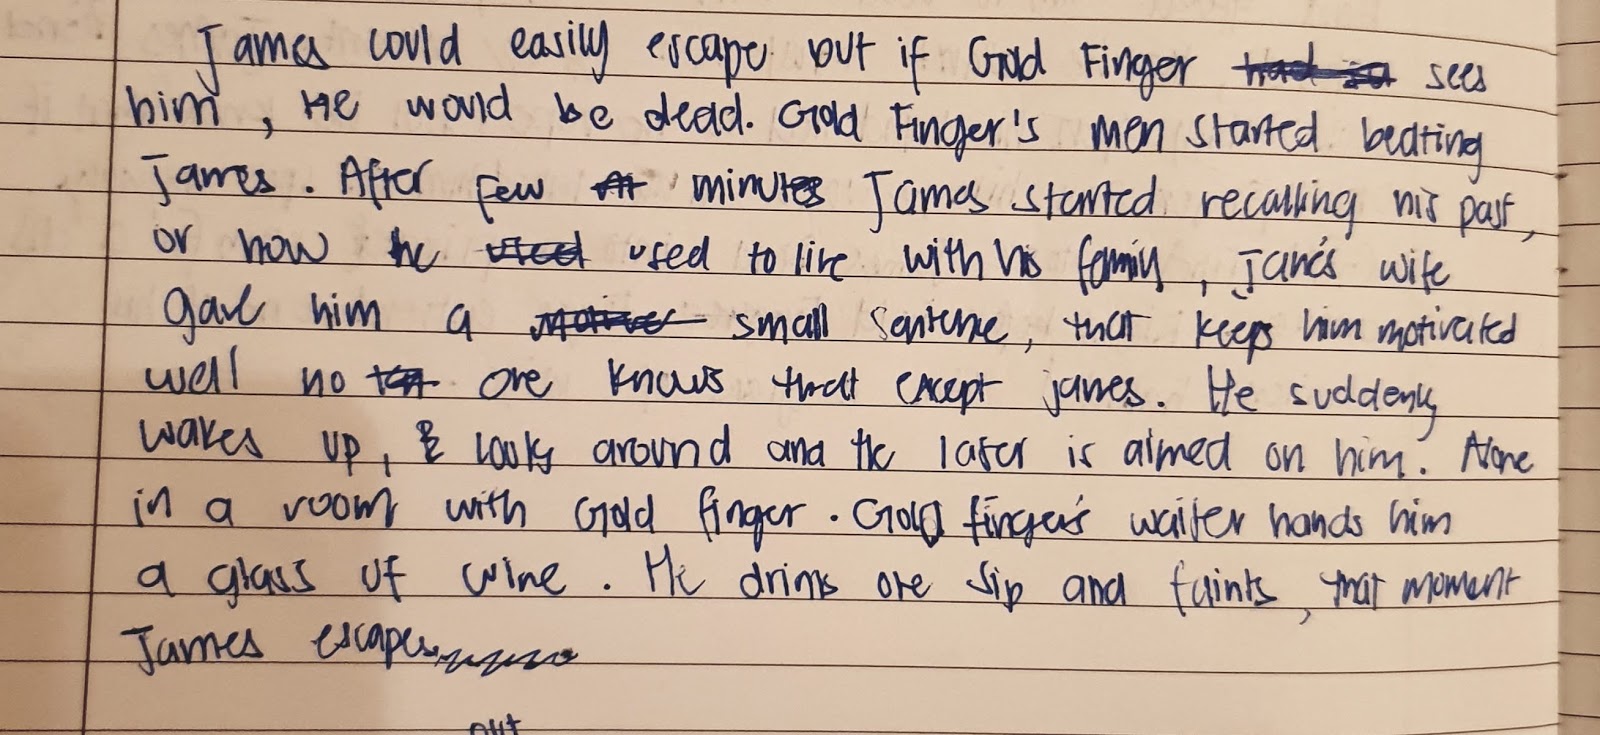 James could easily escape but if Gold Finger sees
him, He would be dead. Gold Finger's men started beating
James. After few minutes James started recalling his past,
or how he used to live with his family, James's wife
gave him a small sentence, that keeps him motivated
well no one knows that except james. He suddenly
wakes up, & looks around and the later is aimed on him. Alone
in a room with Gold finger. Gold finger's waiter hands him
a glass of wine. He drinks one sip and faints, that moment
James escapes
out